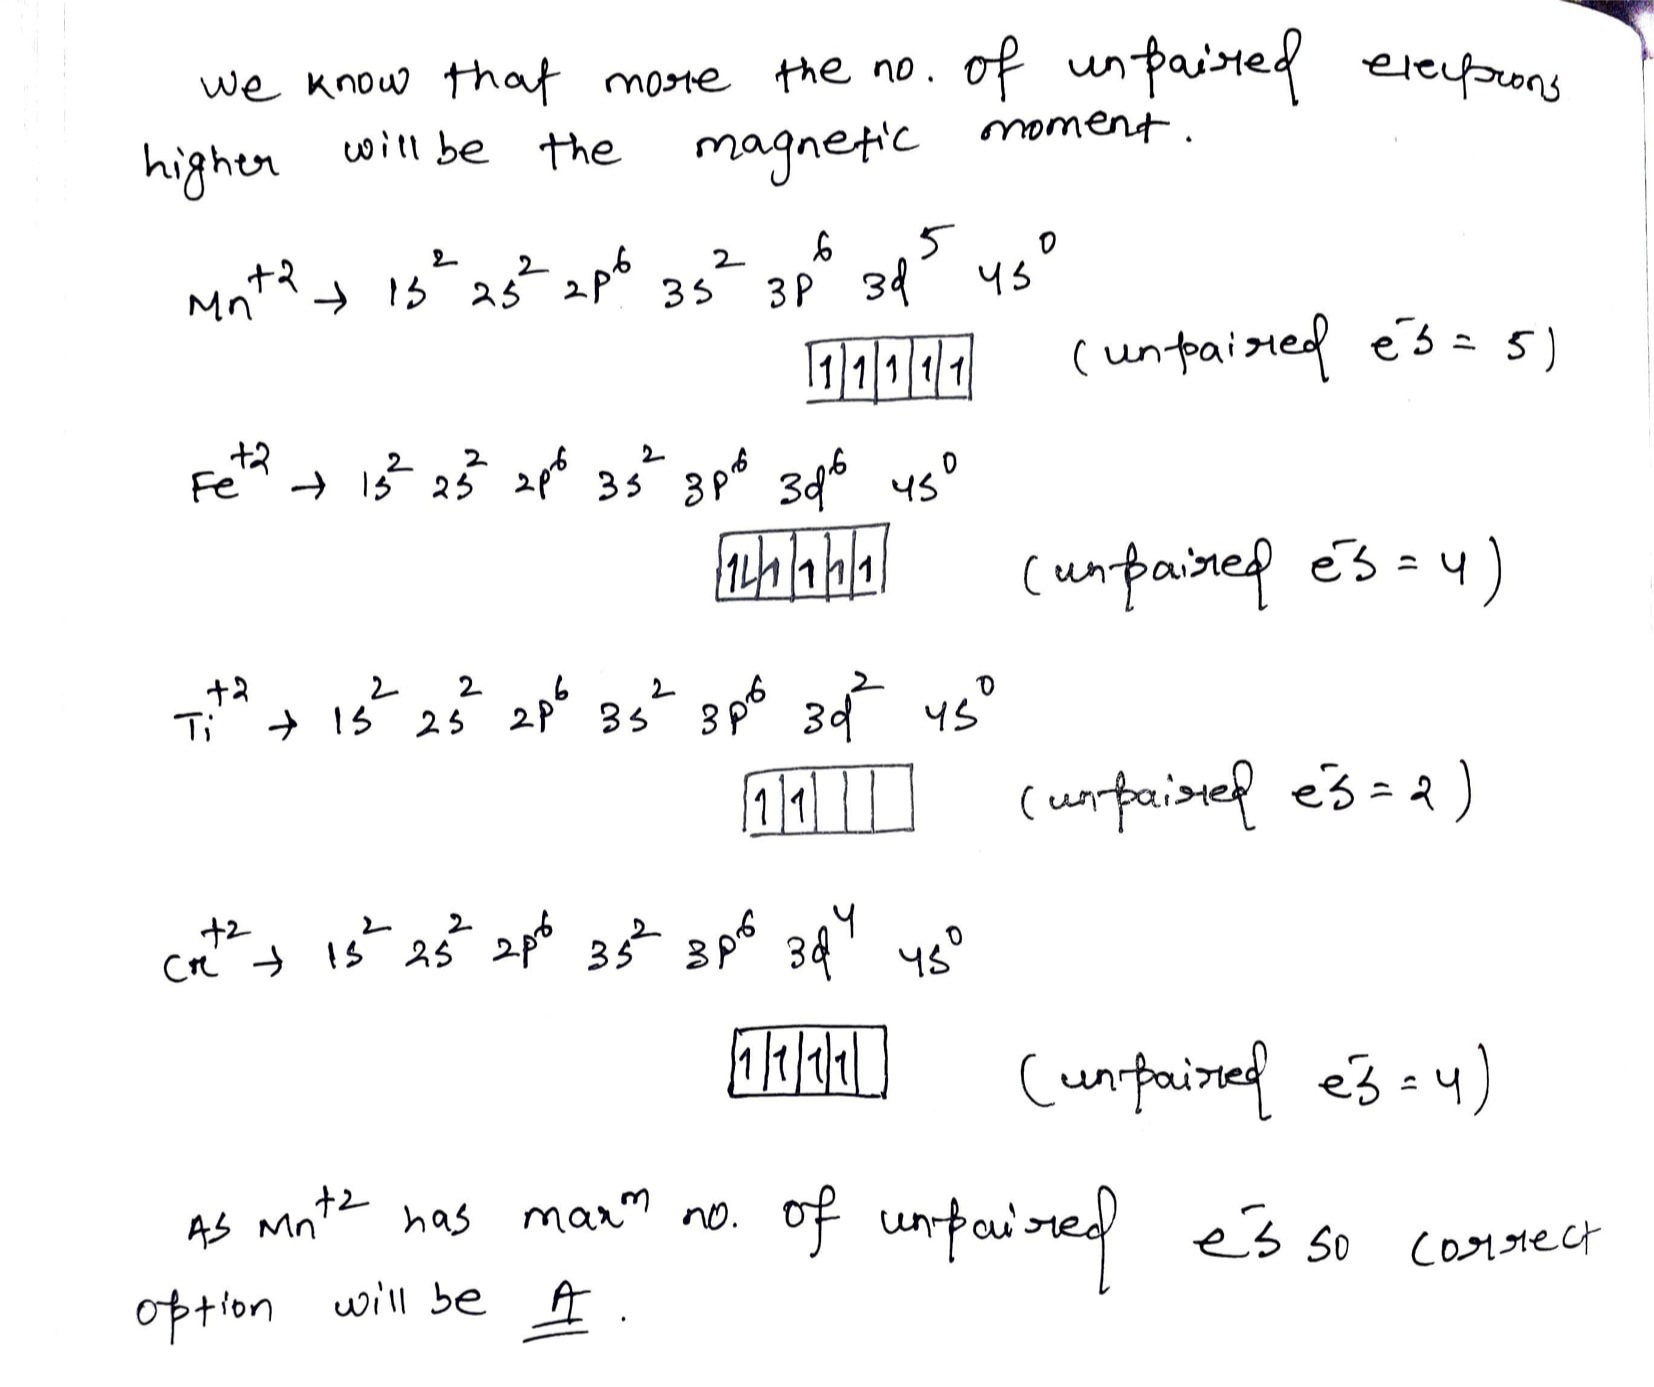 we know that more the no. of unpaired electrons
higher will be the magnetic moment.
Mn⁺² → 1s² 2s² 2p⁶ 3s² 3p⁶ 3d⁵ 4s⁰
1 1 1 1 1 (unpaired e⁻s = 5)
Fe⁺² → 1s² 2s² 2p⁶ 3s² 3p⁶ 3d⁶ 4s⁰
1L 1 1 1 1 (unpaired e⁻s = 4)
Ti⁺² → 1s² 2s² 2p⁶ 3s² 3p⁶ 3d² 4s⁰
1 1 (unpaired e⁻s = 2)
Cr⁺² → 1s² 2s² 2p⁶ 3s² 3p⁶ 3d⁴ 4s⁰
1 1 1 1 (unpaired e⁻s = 4)
As Mn⁺² has maxᵐ no. of unpaired e⁻s so correct
option will be A.